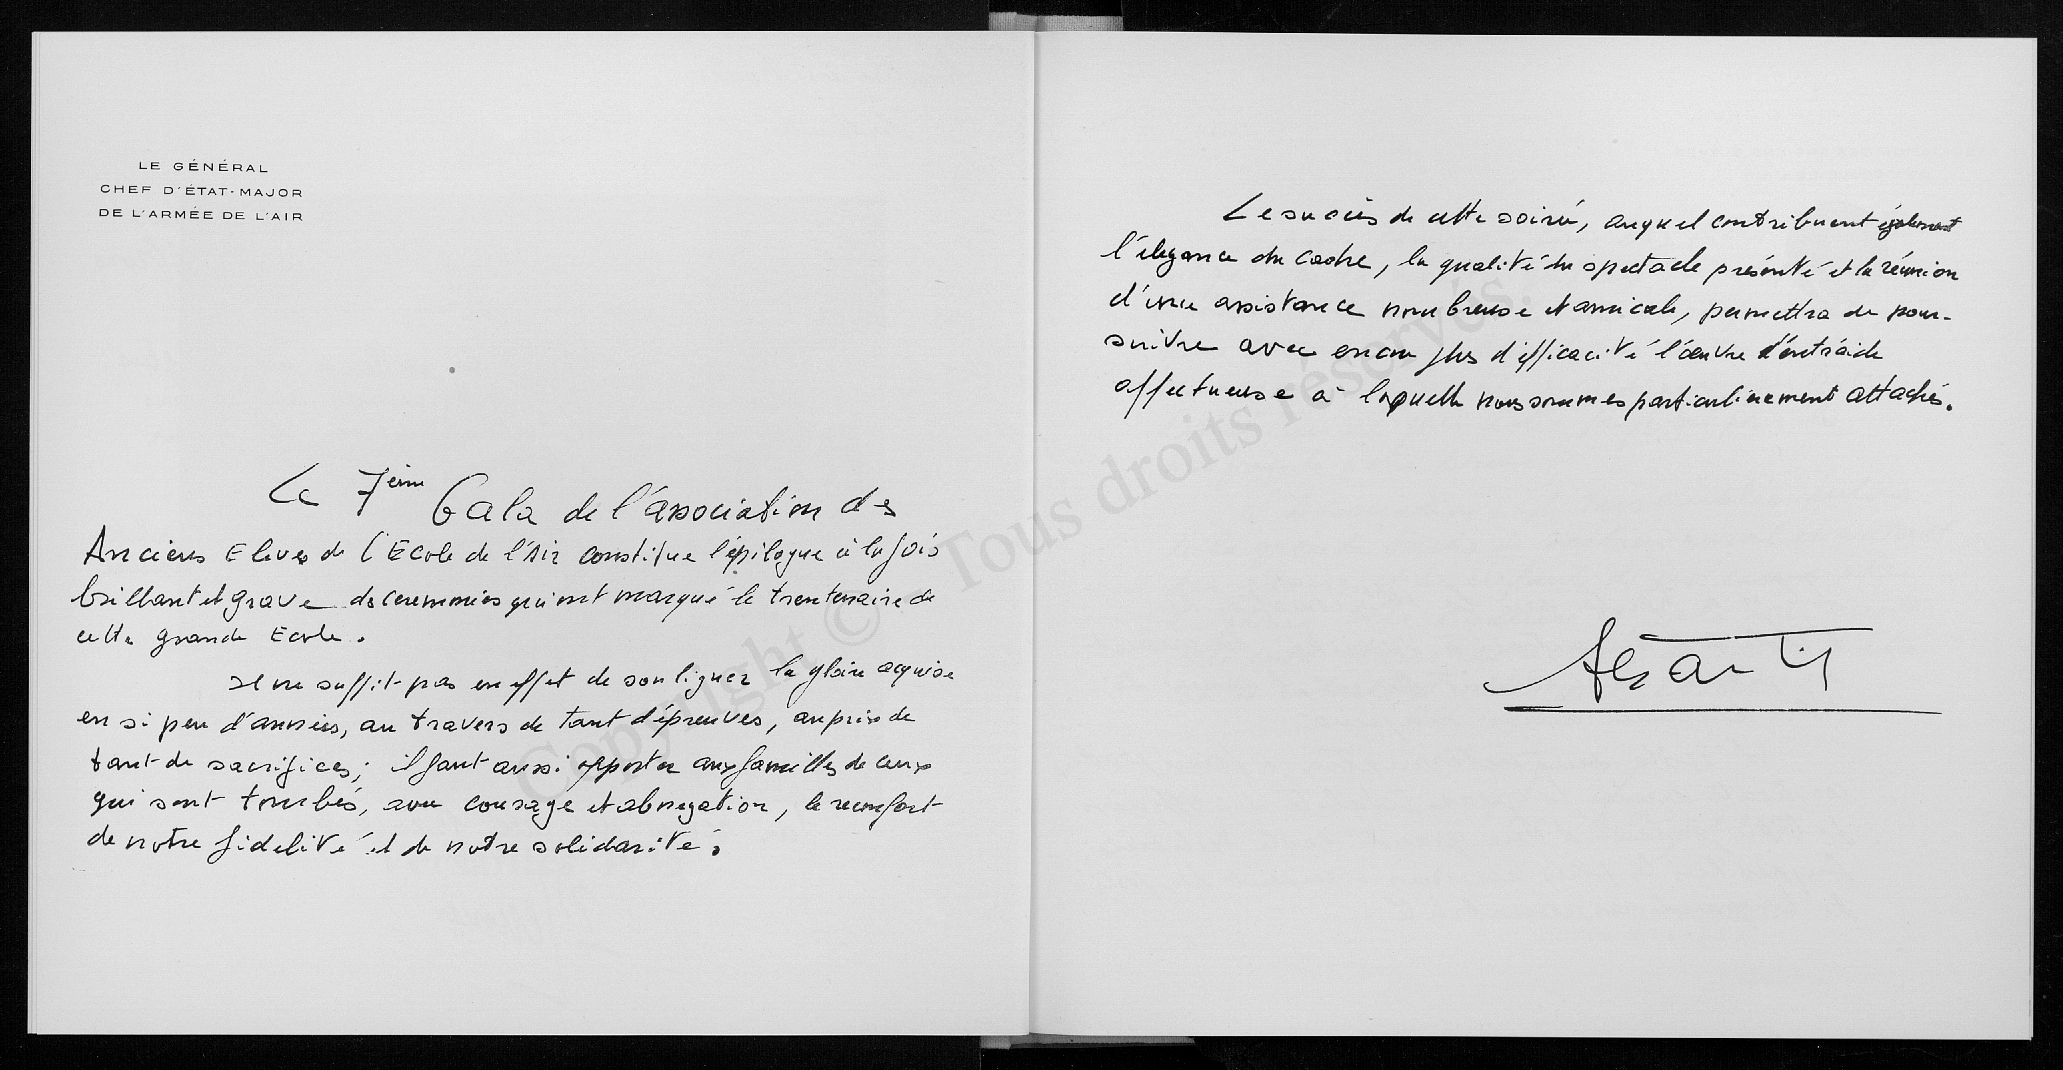 LE GÉNÉRAL
CHEF D'ÉTAT-MAJOR
DE L'ARMÉE DE L'AIR
Le 7ème Gala de l'association des
Anciens Eleves de l'Ecole de l'Air constitue l'épilogue à la fois
brillant et grave des ceremonies qui ont marqué le trentenaire de
cette grande Ecole.
Il ne suffit pas en effet de souligner la gloire acquise
en si peu d'années, au travers de tant d'épreuves, au prix de
tant de sacrifices; il faut aussi apporter aux familles de ceux
qui sont tombés, avec courage et abnegation, le reconfort
de notre fidelité et de notre solidarité.
Le succès de cette soirée, auquel contribuent également
l'élegance du cadre, la qualité du spectacle présenté et la réunion
d'une assistance nombreuse et amicale, permettra de pour-
suivre avec encore plus d'efficacité l'œuvre d'entraide
affectueuse à laquelle nous sommes particulièrement attachés.
Copyright © Tous droits réservés.